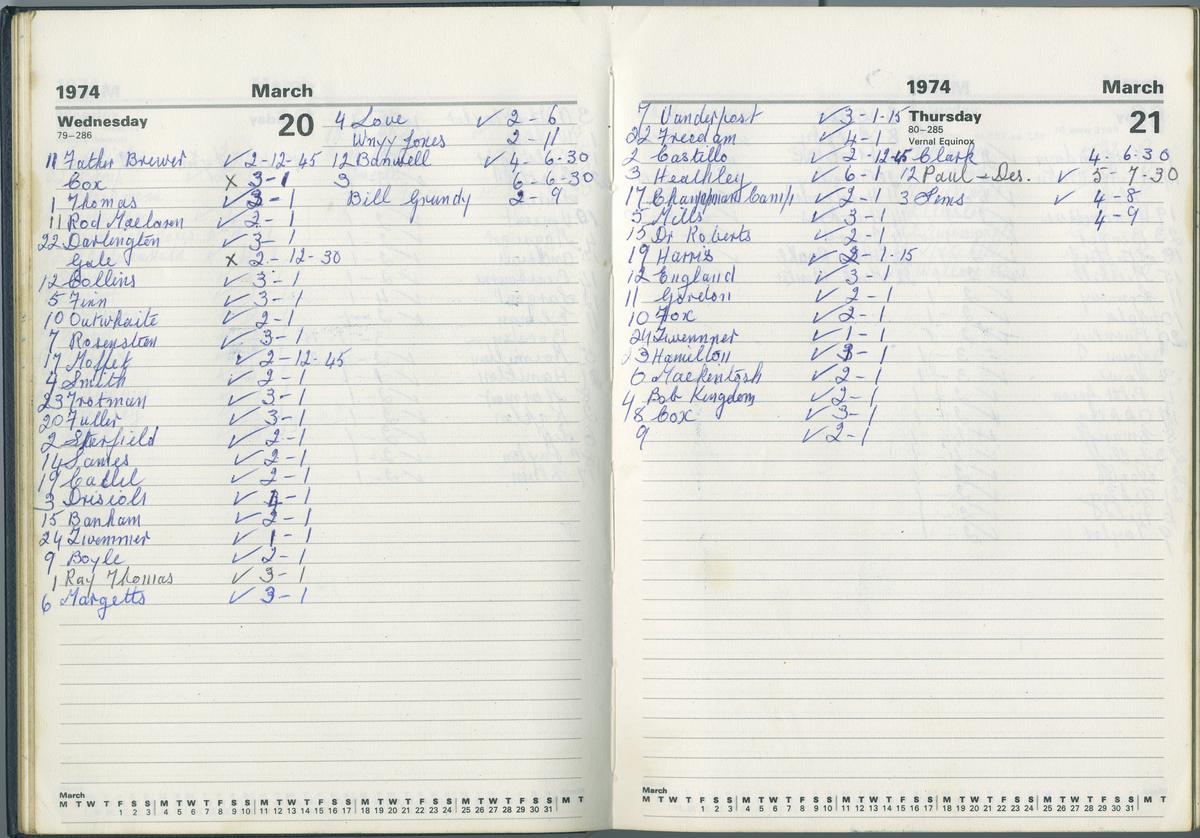 1974 March
Wednesday 20 4 Love ✓ 2 - 6
79-286
Wnyx Jones 2 - 11
11 Father Brewer ✓ 2 - 12-45 12 Banwell ✓ 4 - 6-30
Cox x 3 - 1 3 6 - 6-30
1 Thomas ✓ 3 - 1 Bill Grundy 2 - 9
11 Rod Maclaren ✓ 2 - 1
22 Darlington ✓ 3 - 1
Gale x 2 - 12-30
12 Collins ✓ 3 - 1
5 Finn ✓ 3 - 1
10 Outwhaite ✓ 2 - 1
7 Rosensten ✓ 3 - 1
17 Moffet ✓ 2 - 12-45
4 Smith ✓ 2 - 1
23 Trotman ✓ 3 - 1
20 Fuller ✓ 3 - 1
2 ✓ 2 - 1
14 James ✓ 2 - 1
19 ✓ 2 - 1
3 ✓ 4 - 1
15 Banham ✓ 2 - 1
24 Zwemmer ✓ 1 - 1
9 Boyle ✓ 2 - 1
1 Ray Thomas ✓ 3 - 1
6 Margetts ✓ 3 - 1
March
M T W T F S S M T W T F S S M T W T F S S M T W T F S S M T W T F S S M T
1 2 3 4 5 6 7 8 9 10 11 12 13 14 15 16 17 18 19 20 21 22 23 24 25 26 27 28 29 30 31
1974 March
7 Vanderpost ✓ 3 - 1-15 Thursday 21
22 Freedam ✓ 4 - 1 80-285
Vernal Equinox
2 Castillo ✓ 2 - 12-45 Clark 4 - 6-30
3 Heathley ✓ 6 - 1 12 Paul - Des. ✓ 5 - 7-30
17 ✓ 2 - 1 3 Sims ✓ 4 - 8
5 Mills ✓ 3 - 1 4 - 9
15 Dr Roberts ✓ 2 - 1
19 Harris ✓ 2 - 1-15
12 England ✓ 3 - 1
11 Gordon ✓ 2 - 1
10 Fox ✓ 2 - 1
24 Zwemmer ✓ 1 - 1
23 Hamilton ✓ 3 - 1
6 Mackintosh ✓ 2 - 1
4 Bob Kingdom ✓ 2 - 1
18 Cox ✓ 3 - 1
9 ✓ 2 - 1
March
M T W T F S S M T W T F S S M T W T F S S M T W T F S S M T W T F S S M T
1 2 3 4 5 6 7 8 9 10 11 12 13 14 15 16 17 18 19 20 21 22 23 24 25 26 27 28 29 30 31